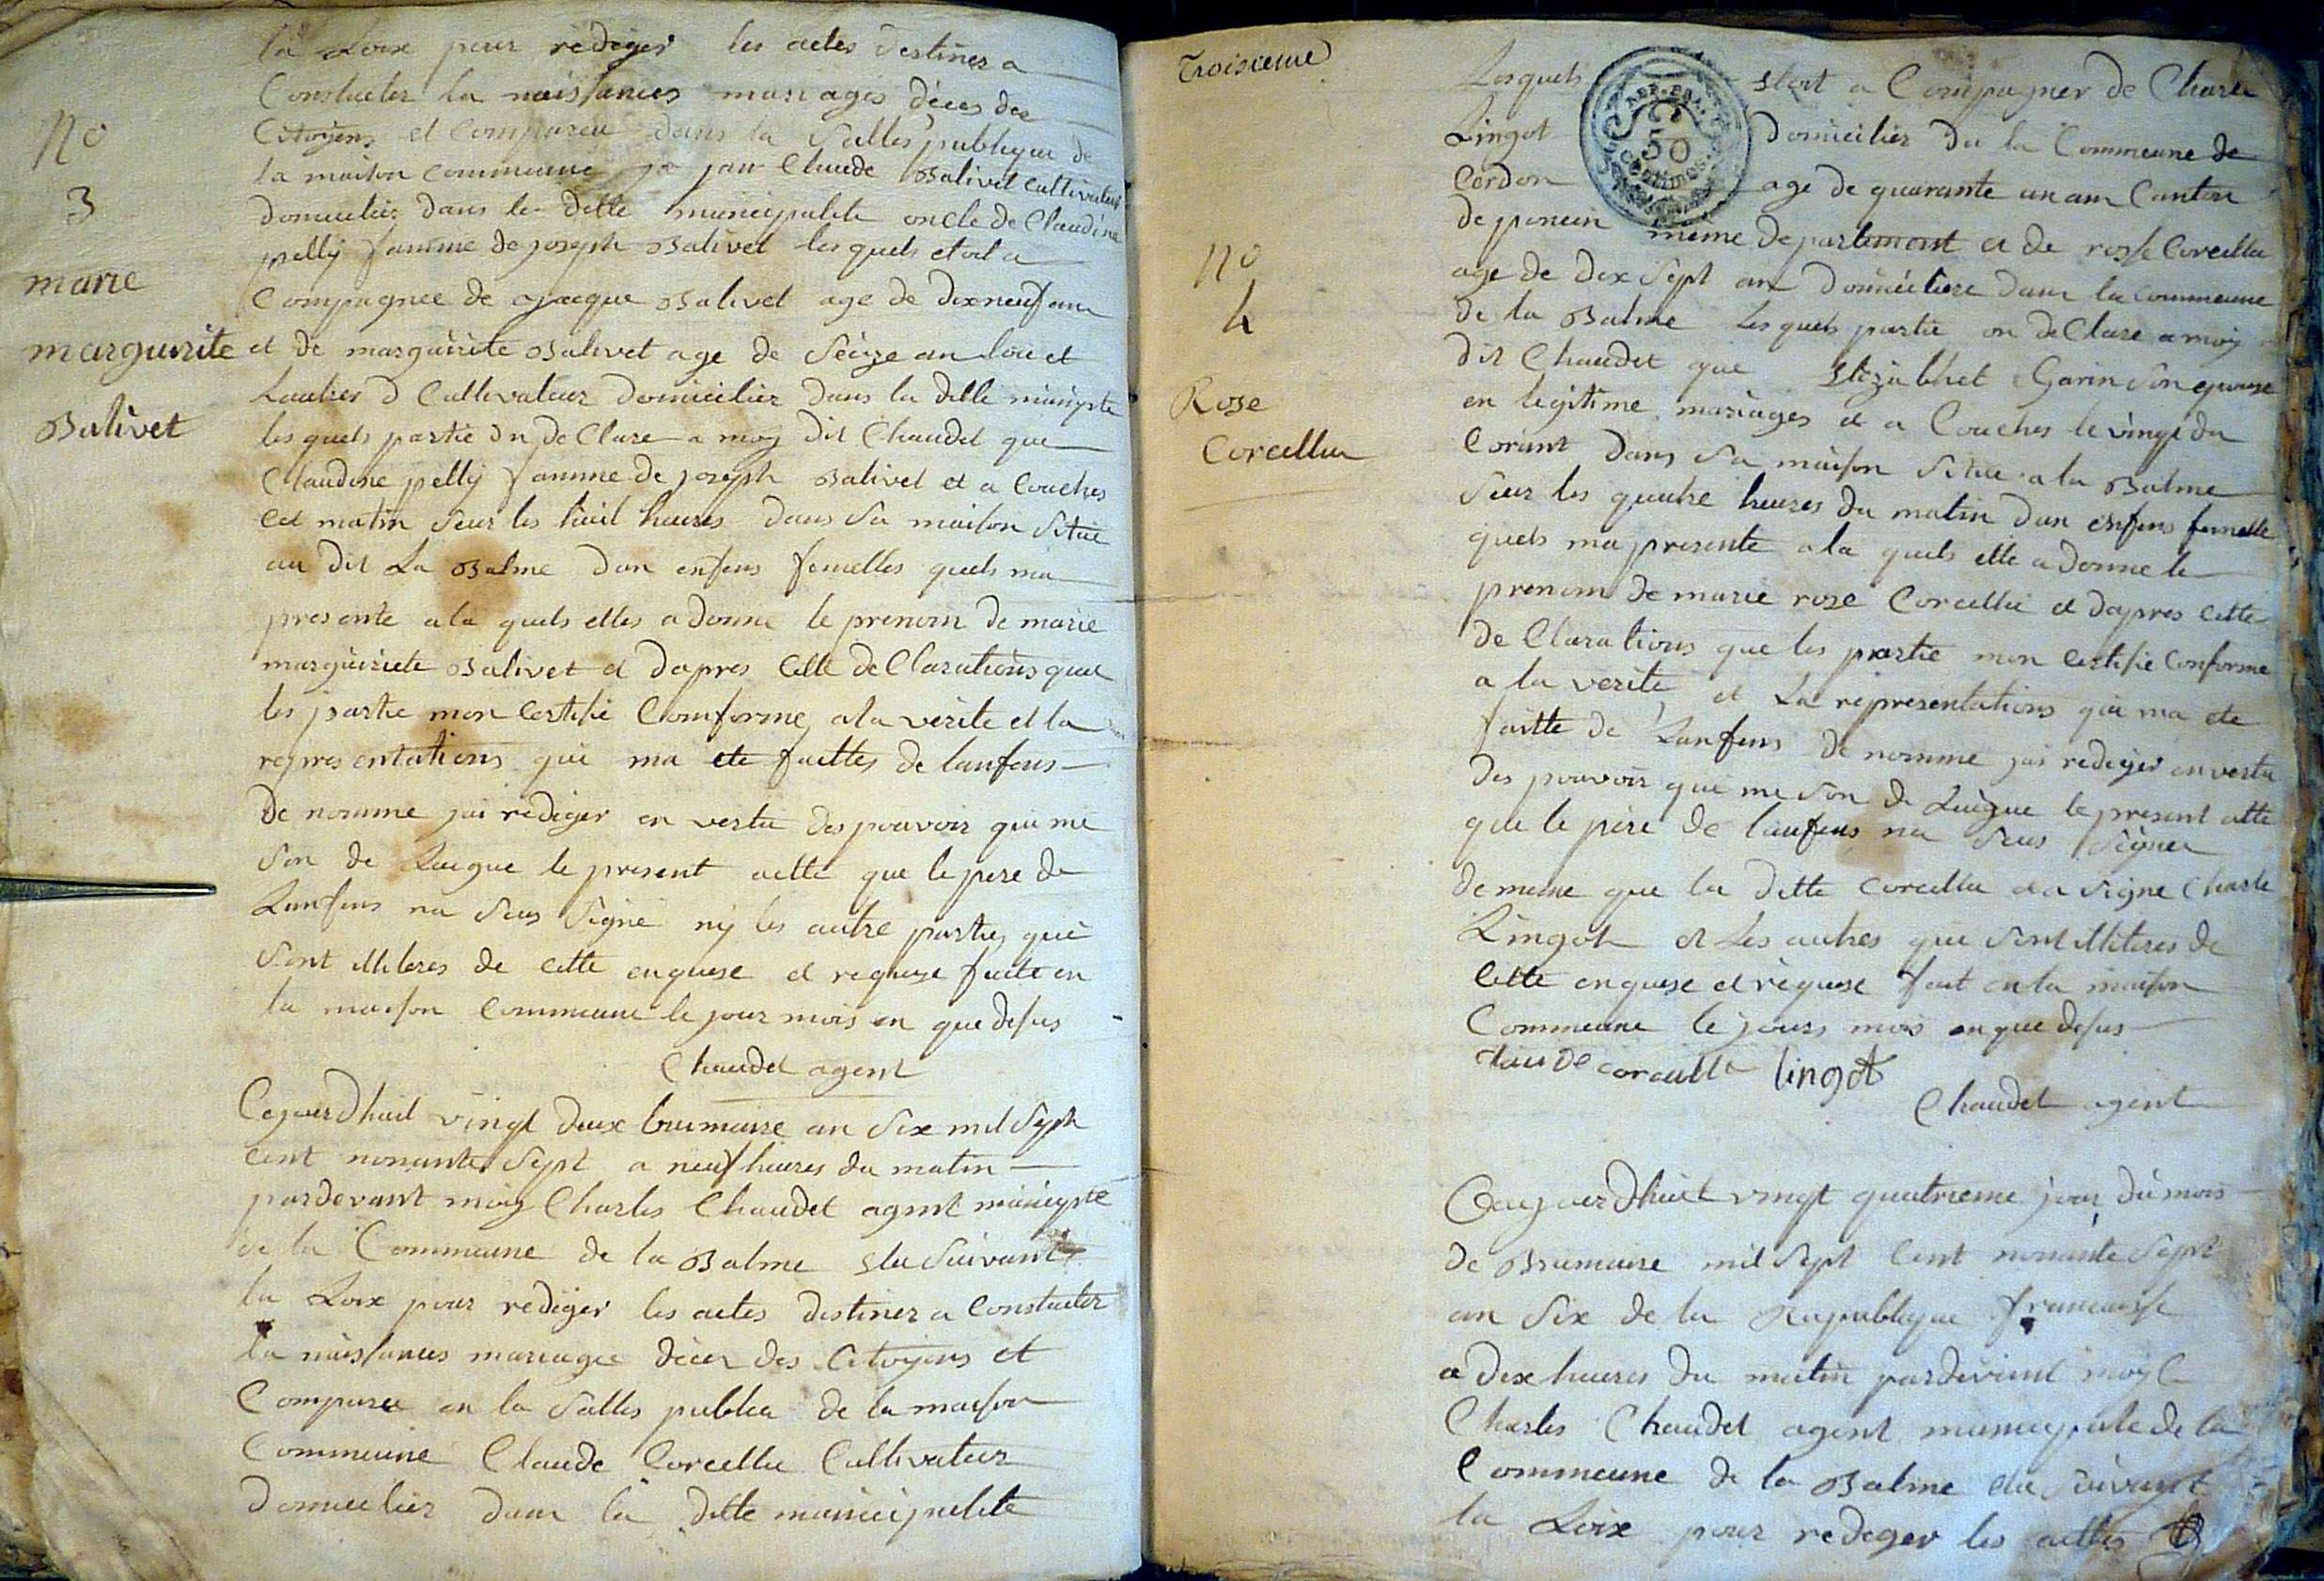 la Loix pour rediger les actes destines a
Constater la naissances mariages déces des
Citoyens et Compareu dans la Salles publique de
la maison commeune jo jan Claude Balivet cultivateur
domicilier dans la ditte municipalite oncle de Claudine
pelly famme de joseph Balivet lesquels etoit a
Compagnee de Jacque Balivet age de dixneuf ans
et de marguèrite Balivet age de Séize an lou et
Lautres d Cultivateur domicilier dans la ditte municipte
lesquels partie on de Clare a moy dit Chaudet que
Claudine pelly famme de joseph Balivet et a Couches
cet matin seur les huit heures dans Sa maison Sitùé
au dit La Balme dun enfans femelles quels ma
presente ala quels elles a donne le prenom de marie
marguèriete Balivet et dapres Cette de Clarations que
les partie mon certifie Comforme ala vérite et la
representations qui ma ete faittes de lanfans
de nomme jai rediger en vertu des pouvoir qui me
Son de Laigue le present actte que le pere de
Lanfans na Seus Signe nÿ les autre parties qui
Sont illiteres de cette enquise et requise faite en
la maison Commeune le jour mois an que desus
Chaudet agent
Cejourdhuit vingt deux brumaire an Six mil Sept
cent nonante Sept a neuf heures du matin
pardevant moy Charles Chaudet agent municipte
de la Commeune de la Balme elu Suivant
la Loix pour rediger les actes destiner a Constater
la naissances mariages décer des Citoyens et
Comparu en la Salles publica de la maison
Commeune Claude Corcellu Cultivateur
domicilier dans la ditte municipalite
no
3
marie
marguerite
Balivet
Troisieme
Lesquels etoit a Compagner de Charle
Lingot domicilier du la Commeune de
Cerdon age de quarante un an Canton
de poncin même departement et de rosse Corcellu
age de dix Sept an domiciliere dans la commeune
de la Balme Lesquels partie on de Clare a moy
dit Chaudet que Elizabhet Garin Son epouse
en legitime mariages et a Couches le vingt du
Corant dans Sa maison Sitùe a la Balme
Seur les quatre heures du matin dun enfans femelle
quels ma presente ala quels elle a donne le
prenom de marie rose Corcellu et dapres cette
de Clarations que les partie mon certifie Conforme
a la verite et La representations qui ma ete
faitte de Lanfans de nomme jai rediger en vertu
des pouvoir qui me son de Laigue le present actte
que le père de lanfans na Seus Signer
de meme que la ditte corcellu et a signe Charle
Lingot et les autres que sont illiteres de
Cette enquise et requise fait en la maison
Commeune le jours mois an que desus
Claude corcullu lingot
Chaudet agent
Ceajourdhuit vingt quatrieme jour du mois
de Brumaire mil Sept Cent nonante Sept
an Six de la Republique francaisse
a dix heures du matin pardevant moy
Charles Chaudet agent municipale de la
Commeune de la Balme elu Suivant
la Loix pour rediger les acttes
no
4
Rose
Corcellu
REP. FRA.
50
Centimes